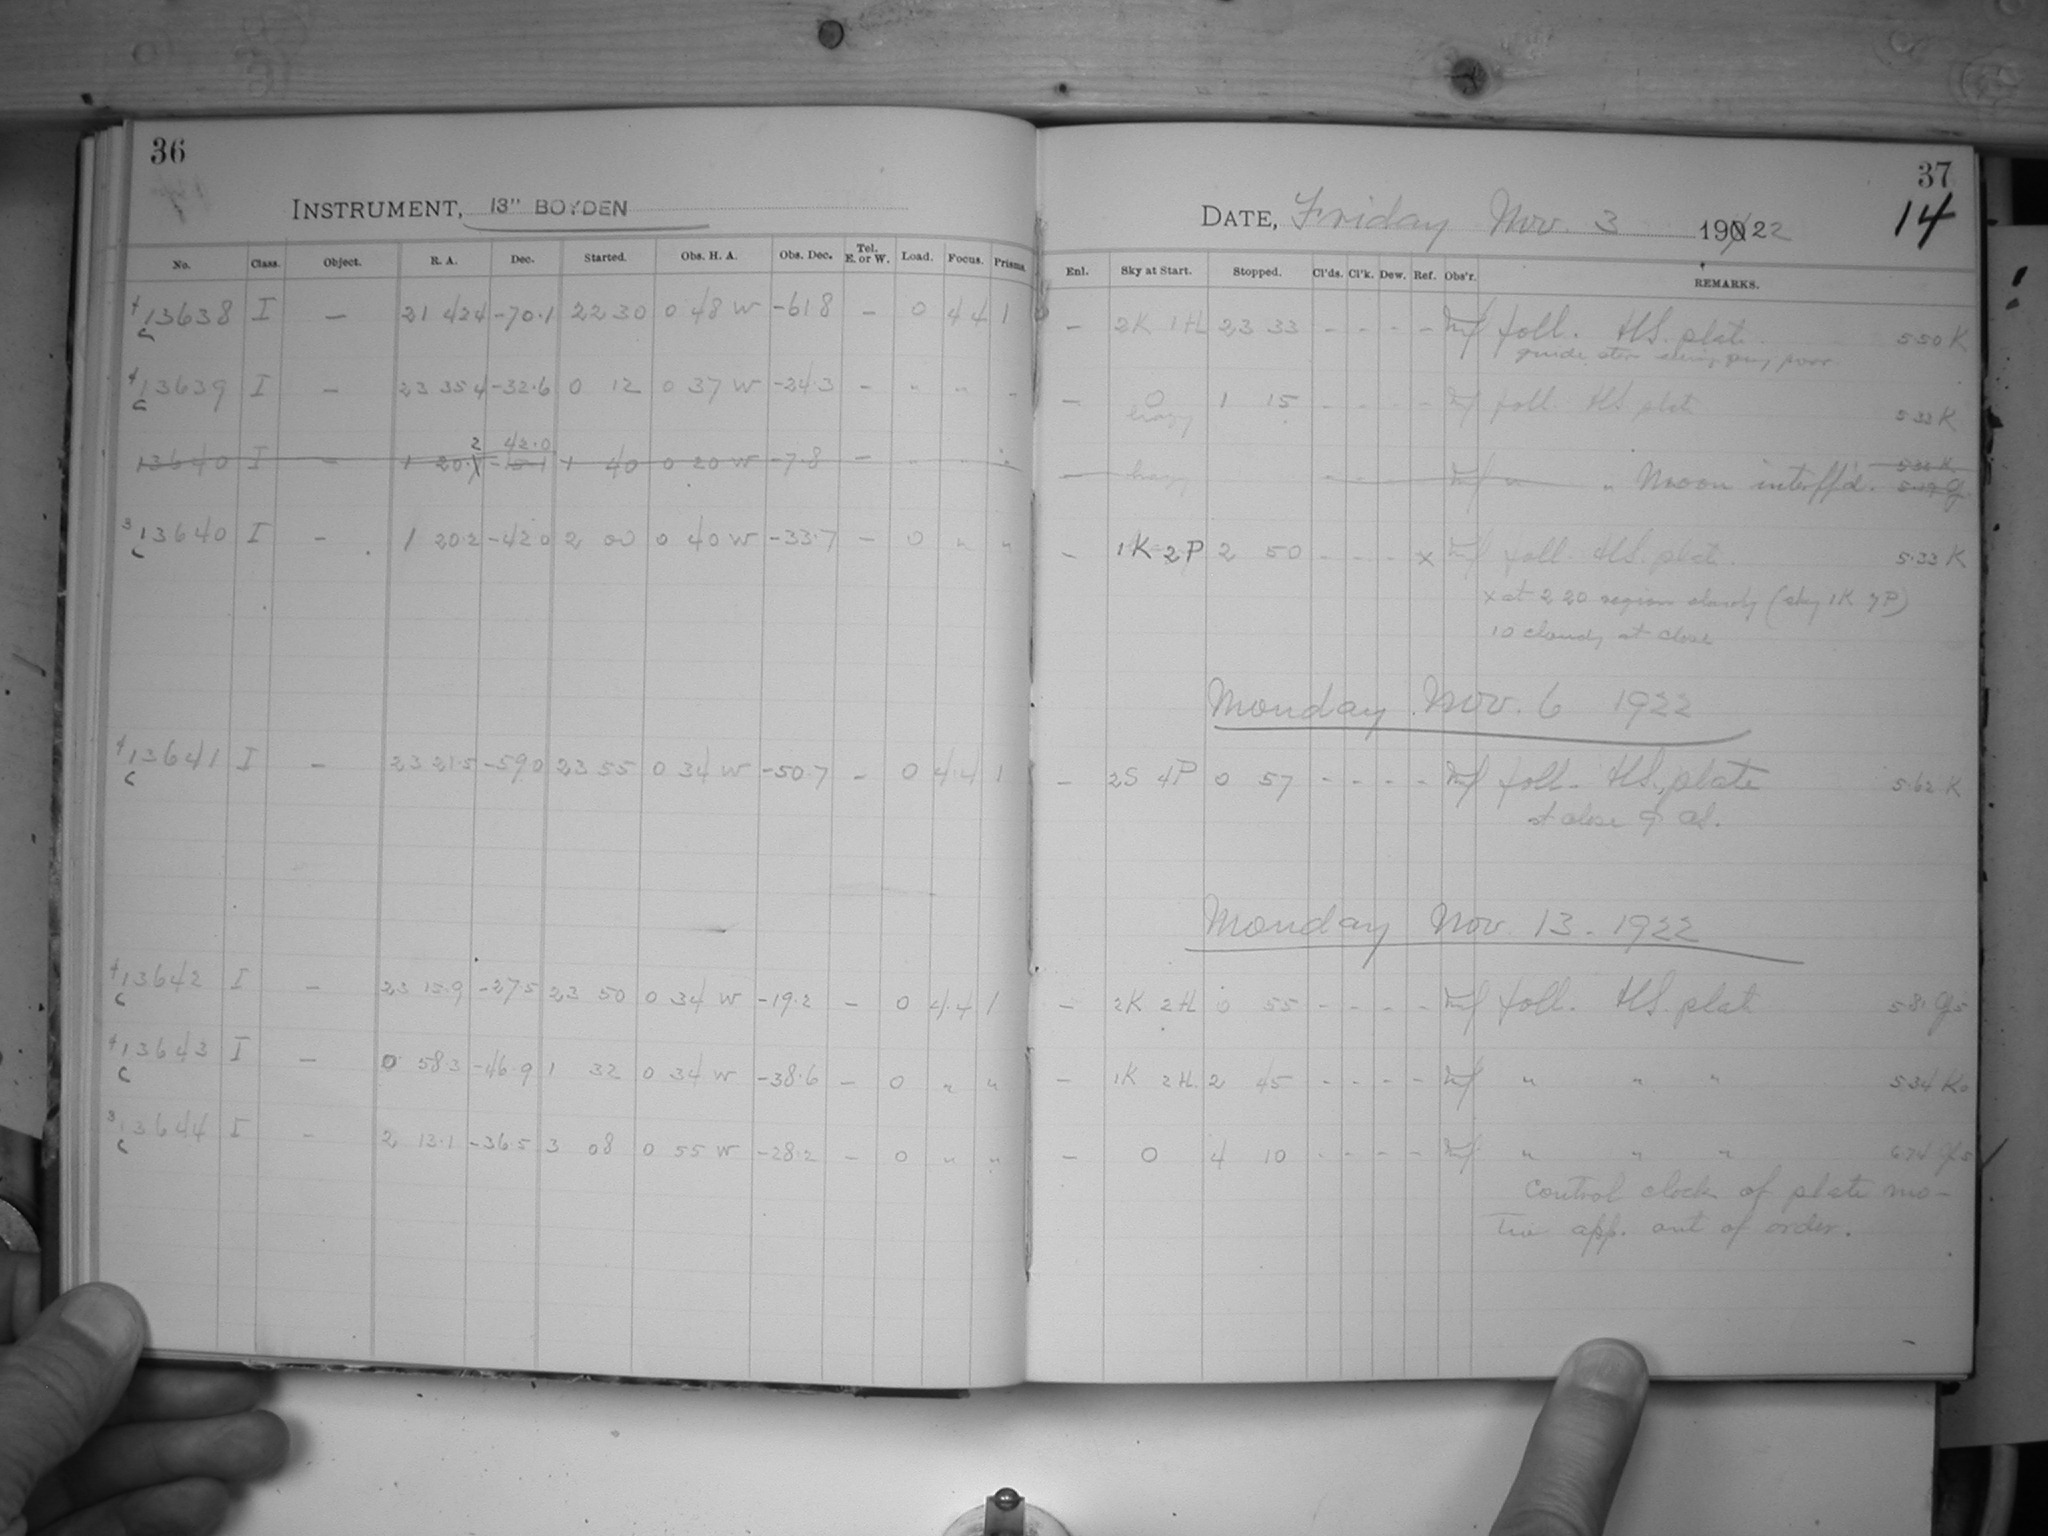 36
INSTRUMENT, 13" BOYDEN
No. Class. Object. R. A. Dec. Started. Obs. H. A. Obs. Dec. Tel. E. or W. Load. Focus. Prisms.
4 13638 I — 21 42.4 -70.1 22 30 0 48 W -61.8 — 0 4.4 1
c
4 13639 I — 23 35.4 -32.6 0 12 0 37 W -24.3 — " " -
c
2 42.0
13640 I — 1 20. 1 40 0 20 W -7.8 —
3 13640 I — 1 20.2 -42.0 2 00 0 40 W -33.7 — 0 " "
c
4 13641 I — 23 21.5 -59.0 23 55 0 34 W -50.7 — 0 4.4 1
c
4 13642 I — 23 15.9 -27.5 23 50 0 34 W -19.2 — 0 4.4 1
c
4 13643 I — 0 58.3 -46.9 1 32 0 34 W -38.6 — 0 " "
c
3 13644 I — 2 13.1 -36.5 3 08 0 55 W -28.2 — 0 " "
c
37
14
DATE, Friday Nov. 3 1922
Enl. Sky at Start. Stopped. Cl'ds. Cl'k. Dew. Ref. Obs'r. REMARKS.
— 2K 1H 23 33 - - - - foll. H.S. plate. 5.50 K
guide star seeing very poor
— 0 1 15 - - - - foll. H.S. plate 5.32 K
hazy
— hazy - - - - " " Moon interff'd.
— 1K 2P 2 50 - - - x foll. H.S. plate. 5.33 K
x at 2 20 region cloudy (sky 1K 7P)
10 cloudy at close
Monday Nov. 6 1922
— 2S 4P 0 57 - - - - foll. H.S. plate 5.62 K
at close 9 cl.
Monday Nov. 13. 1922
— 2K 2H 0 55 - - - - foll. H.S. plate
— 1K 2H. 2 45 - - - - " " "
— 0 4 10 - - - - " " "
Control clock of plate mo-
tion app. out of order.